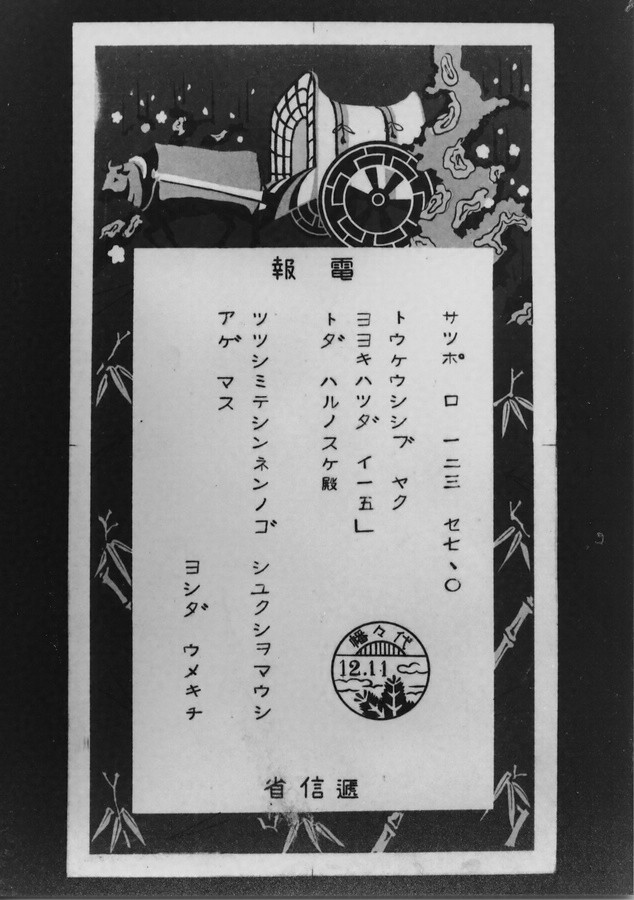 電報
サツポ ロ 一二三 セ七、〇
トウケウシシブ ヤク
ヨヨキハツダ イ一五」
トダ ハルノスケ殿
ツツシミテシンネンノゴ シユクシヲマウシ
アゲ マス
ヨシダ ウメキチ
代々幡
12.11
遞信省